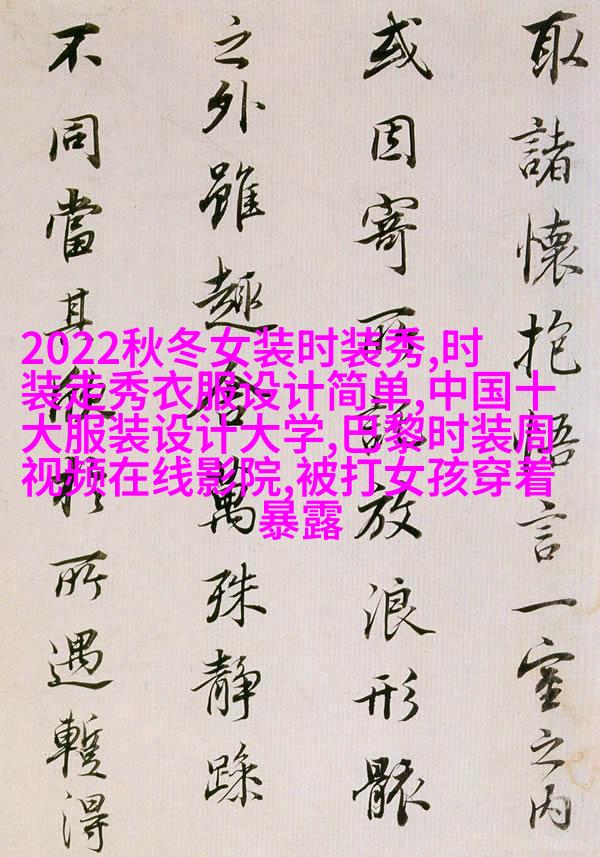 取諸懷抱悟言一室之内
或因寄所託放浪形骸
之外雖趣舍萬殊静躁
不同當其欣於所遇蹔得
2022秋冬女装时装秀,时
装走秀衣服设计简单,中国十
大服装设计大学,巴黎时装周
视频在线影院,被打女孩穿着
暴露